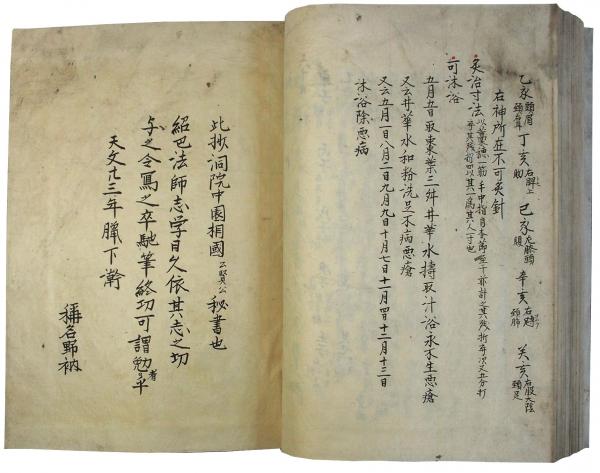 乙亥頭眉頸耳 丁亥右脾上肋 己亥左膝頭腹 辛亥右頸肺 癸亥右股大陰頸足
右神所在不可灸針
灸治寸法
可沐浴
五月五日取東葉二舛井華水擣取汁浴永不生悪瘡
又云井華水和粉洗足不病悪瘡
又云五月一日八月二日九月九日十月七日十一月四日十二月十三日
沐浴除悪病
此抄洞院中園相國公賢公秘書也
紹巴法師志学日久依其志之切
与之令写之卒馳筆終功可謂勉者乎
天文廿三年臘下澣
稱名野衲